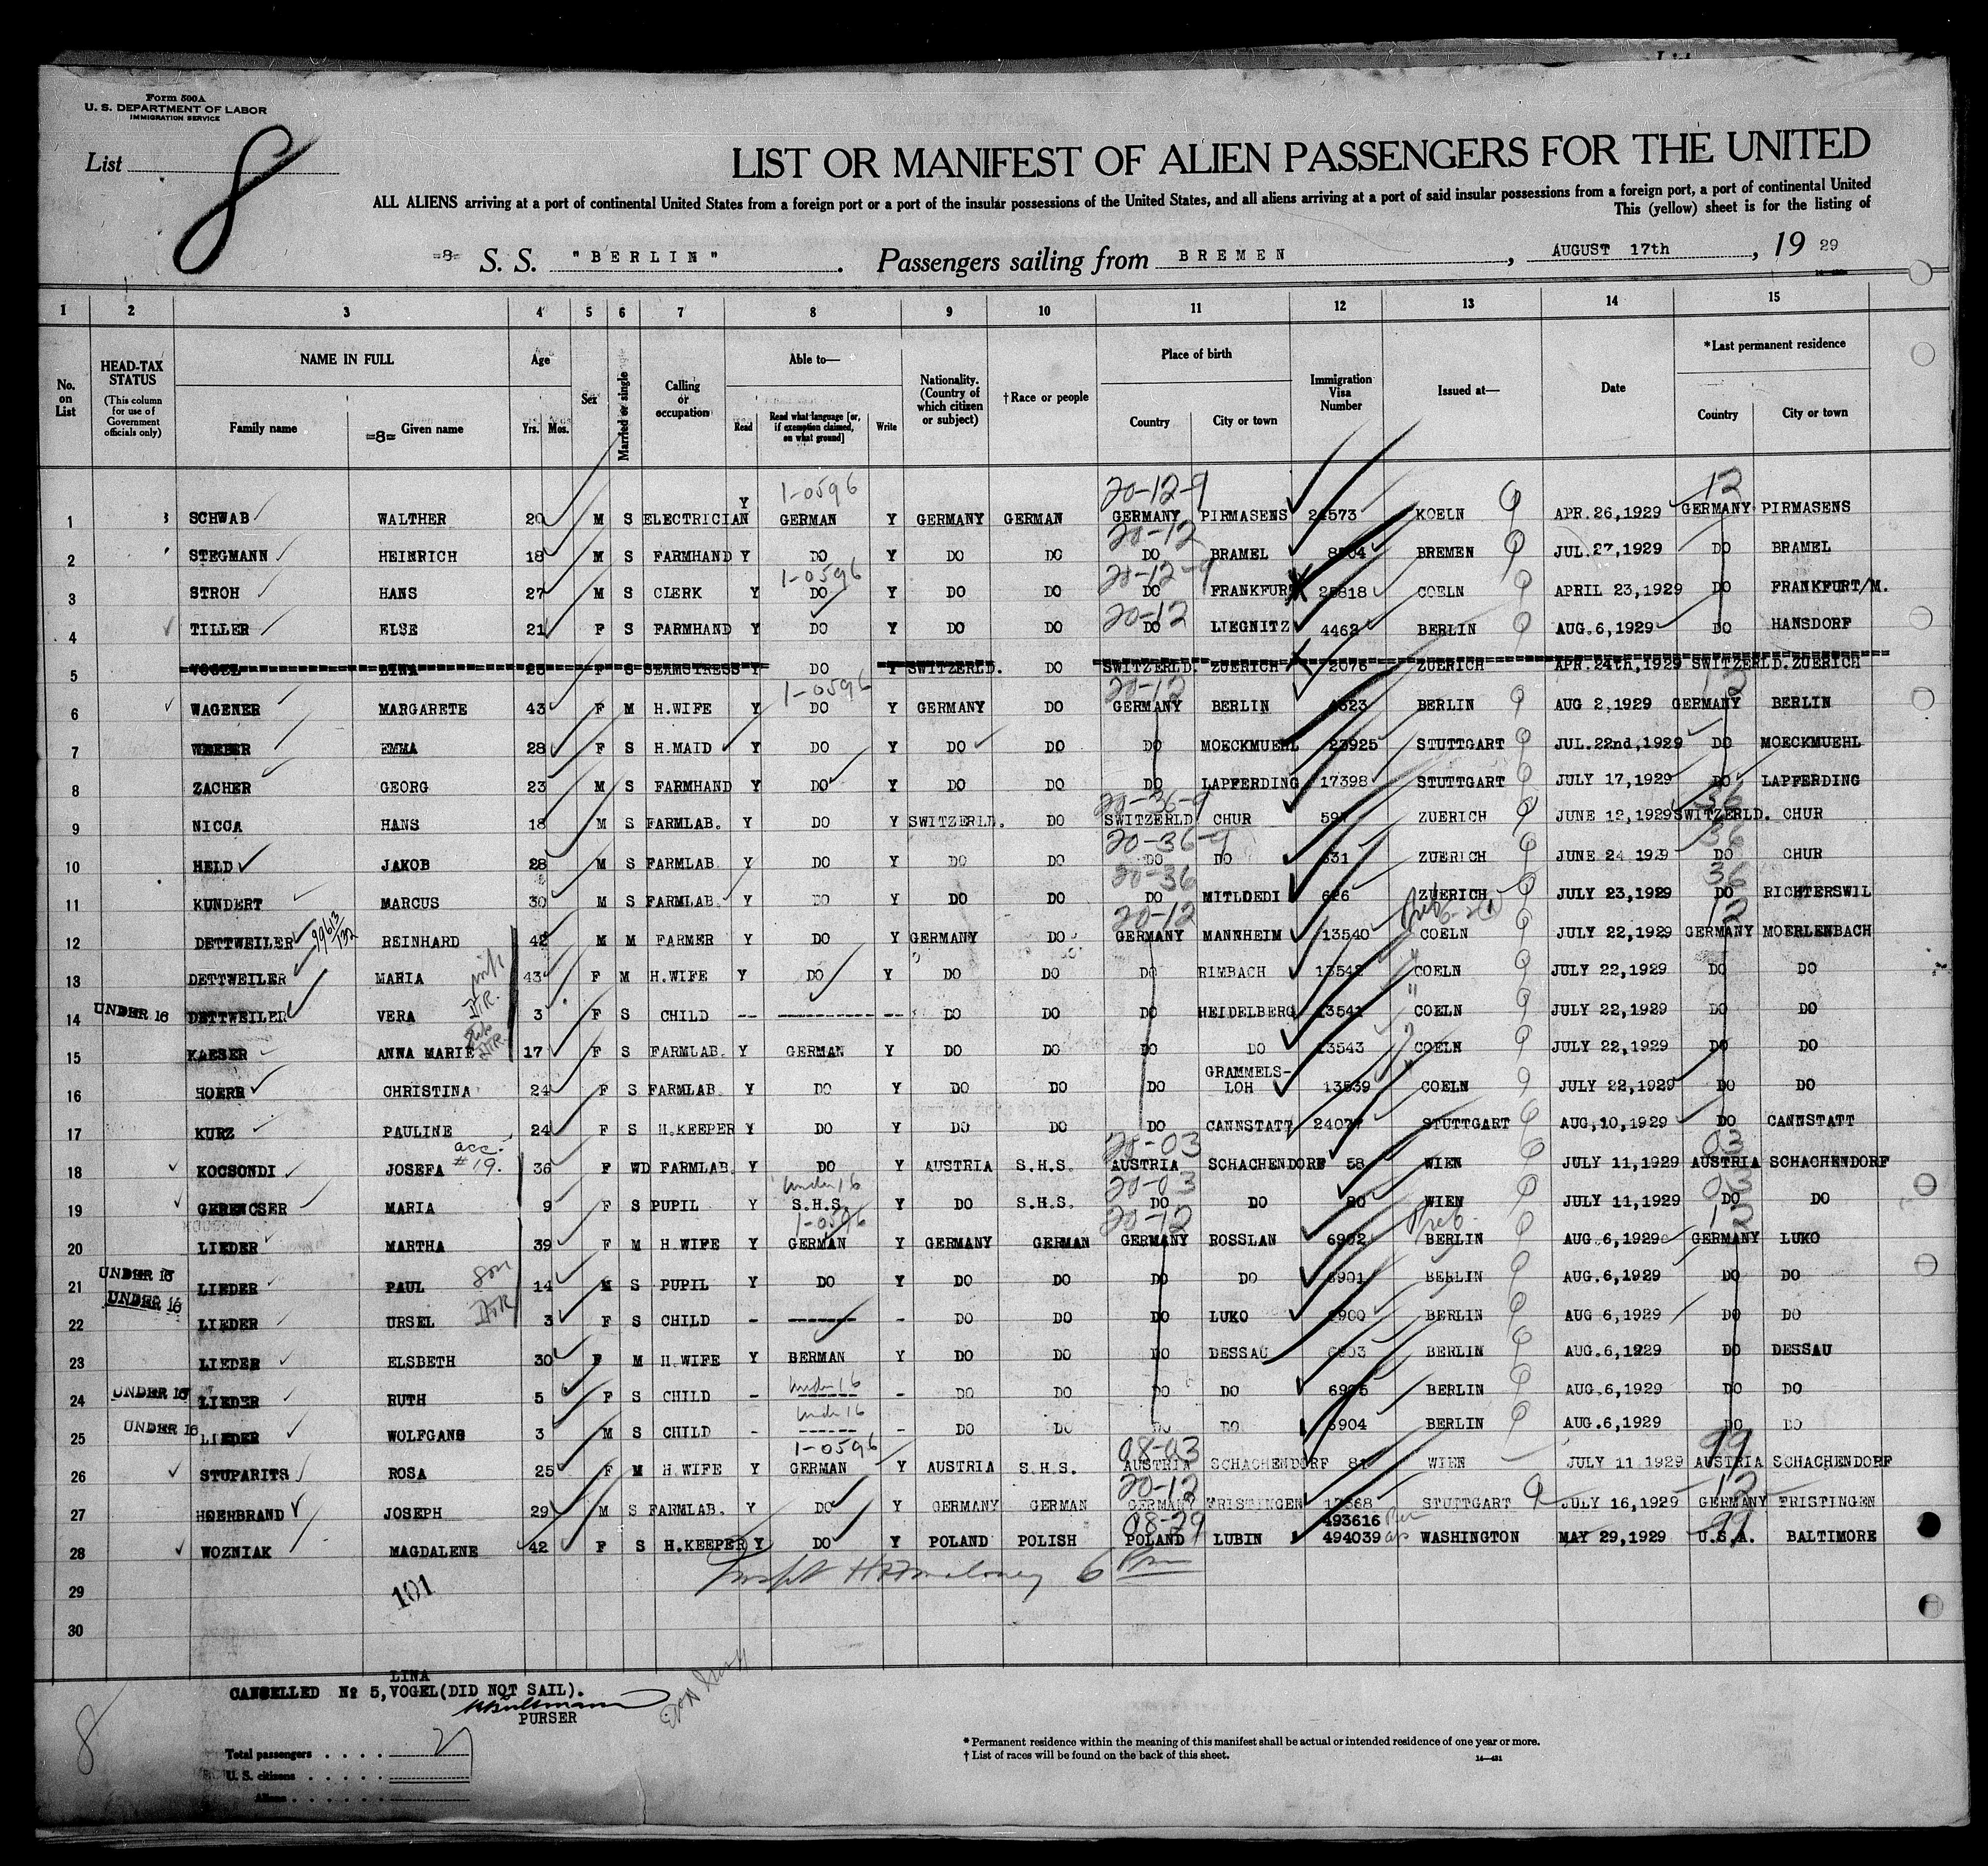 Form 500A
U. S. DEPARTMENT OF LABOR
IMMIGRATION SERVICE
List 8
LIST OR MANIFEST OF ALIEN PASSENGERS FOR THE UNITED
ALL ALIENS arriving at a port of continental United States from a foreign port or a port of the insular possessions of the United States, and all aliens arriving at a port of said insular possessions from a foreign port, a port of continental United
This (yellow) sheet is for the listing of
=8= S. S. "BERLIN" . Passengers sailing from BREMEN , AUGUST 17th , 19 29
1 2 3 4 5 6 7 8 9 10 11 12 13 14 15
No. on List
HEAD-TAX STATUS (This column for use of Government officials only)
NAME IN FULL
Family name =8= Given name
Age Yrs. Mos.
Sex
Married or single
Calling or occupation
Able to— Read Read what language [or, if exemption claimed, on what ground] Write
Nationality. (Country of which citizen or subject)
†Race or people
Place of birth Country City or town
Immigration Visa Number
Issued at—
Date
*Last permanent residence Country City or town
1-0596 20-12-9 12
1 SCHWAB WALTHER 20 M S ELECTRICIAN Y GERMAN Y GERMANY GERMAN GERMANY PIRMASENS 24573 KOELN APR.26,1929 GERMANY PIRMASENS
20-12
2 STEGMANN HEINRICH 18 M S FARMHAND Y DO Y DO DO DO BRAMEL BREMEN JUL.27,1929 DO BRAMEL
1-0596 20-12-9
3 STROH HANS 27 M S CLERK Y DO Y DO DO DO FRANKFURT 25818 COELN APRIL 23,1929 DO FRANKFURT/M.
20-12
4 TILLER ELSE 21 F S FARMHAND Y DO Y DO DO DO LIEGNITZ 4462 BERLIN AUG.6,1929 DO HANSDORF
5 VOGEL LINA 28 F S SEAMSTRESS Y DO Y SWITZERLD. DO SWITZERLD. ZUERICH 2076 ZUERICH APR.24th,1929 SWITZERLD. ZUERICH
1-0596 20-12 12
6 WAGENER MARGARETE 43 F M H.WIFE Y DO Y GERMANY DO GERMANY BERLIN BERLIN AUG 2,1929 GERMANY BERLIN
7 WEEBER EMMA 28 F S H.MAID Y DO Y DO DO DO MOECKMUEHL 23925 STUTTGART JUL.22nd,1929 DO MOECKMUEHL
8 ZACHER GEORG 23 M S FARMHAND Y DO Y DO DO DO LAPFERDING 17398 STUTTGART JULY 17,1929 DO LAPFERDING
20-36-9 36
9 NICCA HANS 18 M S FARMLAB. Y DO Y SWITZERLD. DO SWITZERLD CHUR ZUERICH JUNE 12,1929 SWITZERLD. CHUR
20-36-9 36
10 HELD JAKOB 28 M S FARMLAB Y DO Y DO DO DO DO 631 ZUERICH JUNE 24 1929 DO CHUR
20-36 36
11 KUNDERT MARCUS 30 M S FARMLAB. Y DO Y DO DO DO MITLOEDI 626 ZUERICH JULY 23,1929 DO RICHTERSWIL
20-12 12
12 DETTWEILER REINHARD 42 M M FARMER Y DO Y GERMANY DO GERMANY MANNHEIM 13540 COELN JULY 22,1929 GERMANY MOERLENBACH
13 DETTWEILER MARIA wife 43 F M H.WIFE Y DO Y DO DO DO RIMBACH 13542 COELN JULY 22,1929 DO DO
UNDER 16
14 DETTWEILER VERA DTR. 3 F S CHILD -- ---------- -- DO DO DO HEIDELBERG 13541 COELN JULY 22,1929 DO DO
15 KAESER ANNA MARIE Step DTR. 17 F S FARMLAB. Y GERMAN Y DO DO DO DO 13543 COELN JULY 22,1929 DO DO
16 HOERR CHRISTINA 24 F S FARMLAB Y DO Y DO DO DO GRAMMELS-LOH 13539 COELN JULY 22,1929 DO DO
17 KURZ PAULINE 24 F S H.KEEPER Y DO Y DO DO DO CANNSTATT STUTTGART AUG,10,1929 DO CANNSTATT
acc. #19. 20-03 03
18 KOCSONDI JOSEFA 36 F WD FARMLAB. Y DO Y AUSTRIA S.H.S. AUSTRIA SCHACHENDORF 58 WIEN JULY 11,1929 AUSTRIA SCHACHENDORF
under 16 20-03 03
19 GERENCSER MARIA 9 F S PUPIL Y S.H.S. Y DO S.H.S. DO DO 80 WIEN JULY 11,1929 DO DO
1-0596 20-12 12
20 LIEDER MARTHA 39 F M H.WIFE Y GERMAN Y GERMANY GERMAN GERMANY ROSSLAN 6902 BERLIN AUG.6,1929 GERMANY LUKO
UNDER 16
21 LIEDER PAUL son 14 M S PUPIL Y DO Y DO DO DO DO 6901 BERLIN AUG.6,1929 DO DO
UNDER 16
22 LIEDER URSEL DTR 3 F S CHILD - ------- - DO DO DO LUKO 6900 BERLIN AUG 6,1929 DO DO
23 LIEDER ELSBETH 30 F M H.WIFE Y BERMAN Y DO DO DO DESSAU 6903 BERLIN AUG.6,1929 DO DESSAU
UNDER 16 under 16
24 LIEDER RUTH 5 F S CHILD - ------ - DO DO DO DO BERLIN AUG.6,1929 DO DO
UNDER 16 under 16
25 LIEDER WOLFGANG 3 M S CHILD - ------ - DO DO DO DO 6904 BERLIN AUG.6,1929 DO DO
1-0596 08-03 99
26 STUPARITS ROSA 25 F M H.WIFE Y GERMAN Y AUSTRIA S.H.S. AUSTRIA SCHACHENDORF 81 WIEN JULY 11 1929 AUSTRIA SCHACHENDORF
20-12 12
27 HOERBRAND JOSEPH 29 M S FARMLAB. Y DO Y GERMANY GERMAN GERMANY FRISTINGEN 17568 STUTTGART JULY 16,1929 GERMANY FRISTINGEN
08-29 493616 99
28 WOZNIAK MAGDALENE 42 F S H.KEEPER Y DO Y POLAND POLISH POLAND LUBIN 494039 WASHINGTON MAY 29,1929 U.S.A. BALTIMORE
29 101
30
LINA
CANSELLED No 5,VOGEL(DID NOT SAIL).
PURSER
8
Total passengers . . . . 27
U. S. citizens . . . . .
Aliens . . . . . .
* Permanent residence within the meaning of this manifest shall be actual or intended residence of one year or more.
† List of races will be found on the back of this sheet. 14—431